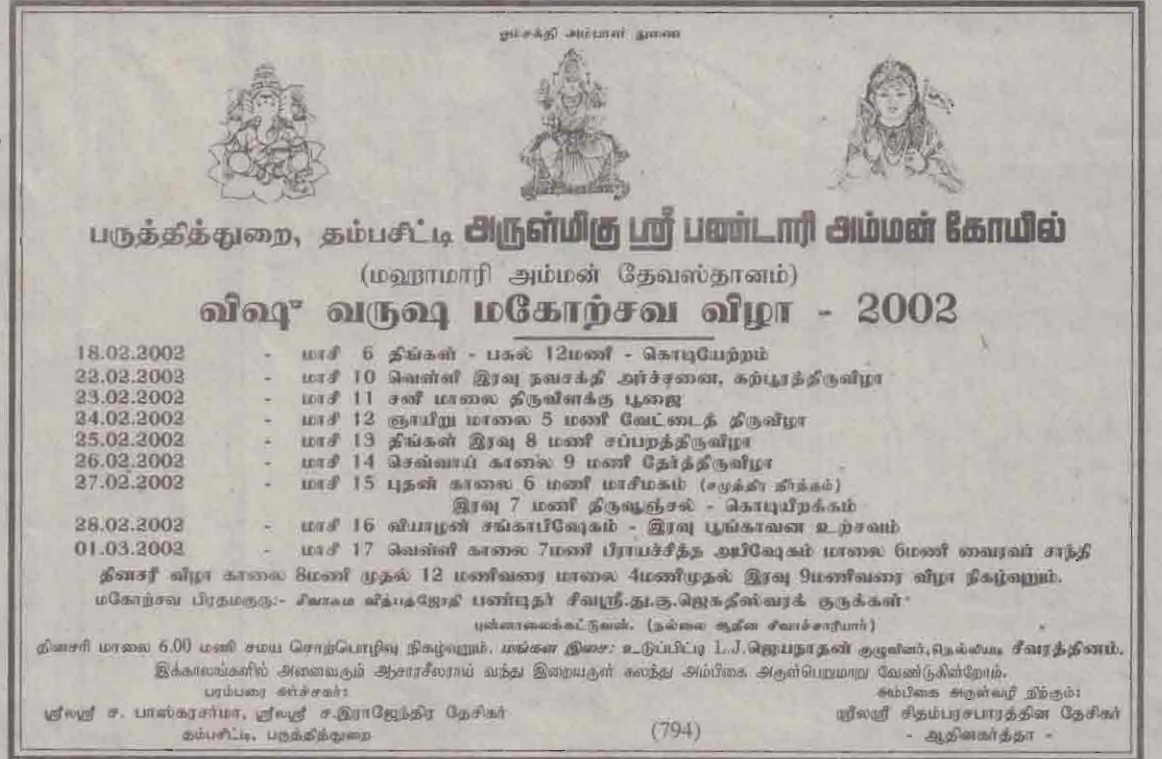 ஓம்சக்தி அம்பாள் துணை
பருத்தித்துறை, தம்பசிட்டி அருள்மிகு ஸ்ரீ பண்டாரி அம்மன் கோயில்
(மஹாமாரி அம்மன் தேவஸ்தானம்)
விஷு வருஷ மகோற்சவ விழா - 2002
18.02.2002 - மாசி 6 திங்கள் - பகல் 12மணி - கொடியேற்றம்
22.02.2002 - மாசி 10 வெள்ளி இரவு நவசக்தி அர்ச்சனை, கற்பூரத்திருவிழா
23.02.2002 - மாசி 11 சனி மாலை திருவிளக்கு பூஜை
24.02.2002 - மாசி 12 ஞாயிறு மாலை 5 மணி வேட்டைத் திருவிழா
25.02.2002 - மாசி 13 திங்கள் இரவு 8 மணி சப்பறத்திருவிழா
26.02.2002 - மாசி 14 செவ்வாய் காலை 9 மணி தேர்த்திருவிழா
27.02.2002 - மாசி 15 புதன் காலை 6 மணி மாசிமகம் (சமுத்திர தீர்த்தம்)
இரவு 7 மணி திருவூஞ்சல் - கொடியிறக்கம்
28.02.2002 - மாசி 16 வியாழன் சங்காபிஷேகம் - இரவு பூங்காவன உற்சவம்
01.03.2002 - மாசி 17 வெள்ளி காலை 7மணி பிராயச்சித்த அபிஷேகம் மாலை 6மணி வைரவர் சாந்தி
தினசரி விழா காலை 8மணி முதல் 12 மணிவரை மாலை 4மணிமுதல் இரவு 9மணிவரை விழா நிகழ்வுறும்.
மகோற்சவ பிரதமகுரு:- சிவாகம வித்பத்ஜோதி பண்டிதர் சிவஸ்ரீ.து.கு.ஜெகதீஸ்வரக் குருக்கள்
புன்னாலைக்கட்டுவன். (நல்லை ஆதீன சிவாச்சாரியார்)
தினசரி மாலை 6.00 மணி சமய சொற்பொழிவு நிகழ்வுறும். மங்கள இசை: உடுப்பிட்டி L.J.ஜெயநாதன் குழுவினர், நெல்லியடி சீவரத்தினம்.
இக்காலங்களில் அனைவரும் ஆசாரசீலராய் வந்து இறையருள் கலந்து அம்பிகை அருள்பெறுமாறு வேண்டுகின்றோம்.
பரம்பரை அர்ச்சகர்:
ஸ்ரீலஸ்ரீ ச. பாஸ்கரசர்மா, ஸ்ரீலஸ்ரீ ச.இராஜேந்திர தேசிகர்
தம்பசிட்டி, பருத்தித்துறை
(794)
அம்பிகை அருள்வழி நிற்கும்:
ஸ்ரீலஸ்ரீ சிதம்பரசபாரத்தின தேசிகர்
- ஆதினகர்த்தா -